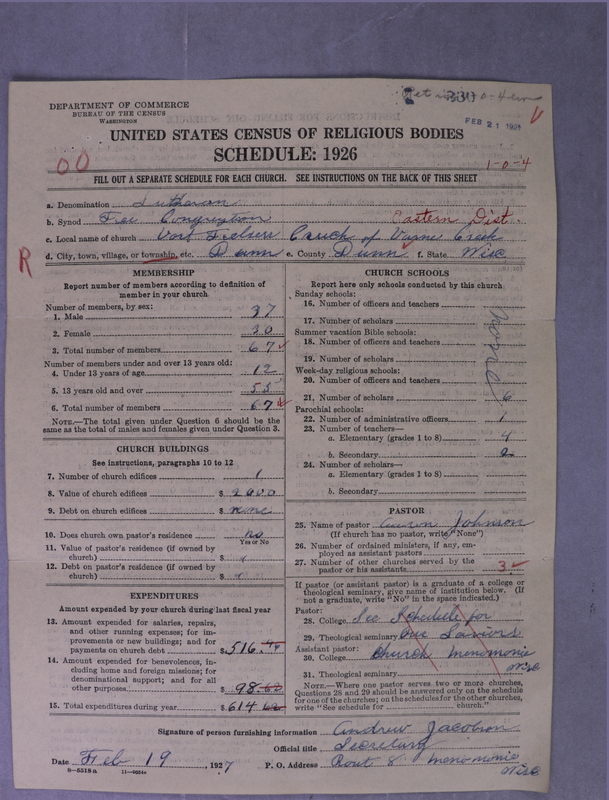 330
DEPARTMENT OF COMMERCE
BUREAU OF THE CENSUS
WASHINGTON
FEB 21 192
UNITED STATES CENSUS OF RELIGIOUS BODIES
SCHEDULE: 1926
00
1-0-4
FILL OUT A SEPARATE SCHEDULE FOR EACH CHURCH. SEE INSTRUCTIONS ON THE BACK OF THIS SHEET
a. Denomination Lutheran
b. Synod Free Congregation Eastern Dist.
c. Local name of church Vort Frelsers Church of
d. City, town, village, or township, etc. Dunn e. County Dunn f. State Wisc
R
MEMBERSHIP
Report number of members according to definition of
member in your church
Number of members, by sex:
1. Male 37
2. Female 30
3. Total number of members 67
Number of members under and over 13 years old:
4. Under 13 years of age 12
5. 13 years old and over 55
6. Total number of members 67
NOTE.—The total given under Question 6 should be the
same as the total of males and females given under Question 3.
CHURCH BUILDINGS
See instructions, paragraphs 10 to 12
7. Number of church edifices 1
8. Value of church edifices $ 2000
9. Debt on church edifices $ none
10. Does church own pastor's residence? no
Yes or No
11. Value of pastor's residence (if owned by
church) $
12. Debt on pastor's residence (if owned by
church) $
EXPENDITURES
Amount expended by your church during last fiscal year
13. Amount expended for salaries, repairs,
and other running expenses; for im-
provements or new buildings; and for
payments on church debt $ 516.
14. Amount expended for benevolences, in-
cluding home and foreign missions; for
denominational support; and for all
other purposes $ 98.
15. Total expenditures during year $ 614
CHURCH SCHOOLS
Report here only schools conducted by this church
Sunday schools:
16. Number of officers and teachers
17. Number of scholars
Summer vacation Bible schools:
18. Number of officers and teachers
19. Number of scholars
none
Week-day religious schools:
20. Number of officers and teachers
21. Number of scholars
Parochial schools:
22. Number of administrative officers
23. Number of teachers—
a. Elementary (grades 1 to 8)
b. Secondary
24. Number of scholars—
a. Elementary (grades 1 to 8)
b. Secondary
PASTOR
25. Name of pastor Johnson
(If church has no pastor, write "None")
26. Number of ordained ministers, if any, em-
ployed as assistant pastors
27. Number of other churches served by the
pastor or his assistants 3
If pastor (or assistant pastor) is a graduate of a college or
theological seminary, give name of institution below. (If
not a graduate, write "No" in the space indicated.)
Pastor:
28. College See Schedule for
29. Theological seminary Our Saviors
Assistant pastor:
30. College Church Menomonie
Wisc
31. Theological seminary
NOTE.—Where one pastor serves two or more churches,
Questions 28 and 29 should be answered only on the schedule
for one of the churches; on the schedules for the other churches,
write "See schedule for church."
Signature of person furnishing information Andrew Jacobson
Official title Secretary
Date Feb 19, 1927 P. O. Address Rout 8 Menomonie
Wisc
8-5518a 11-9664a